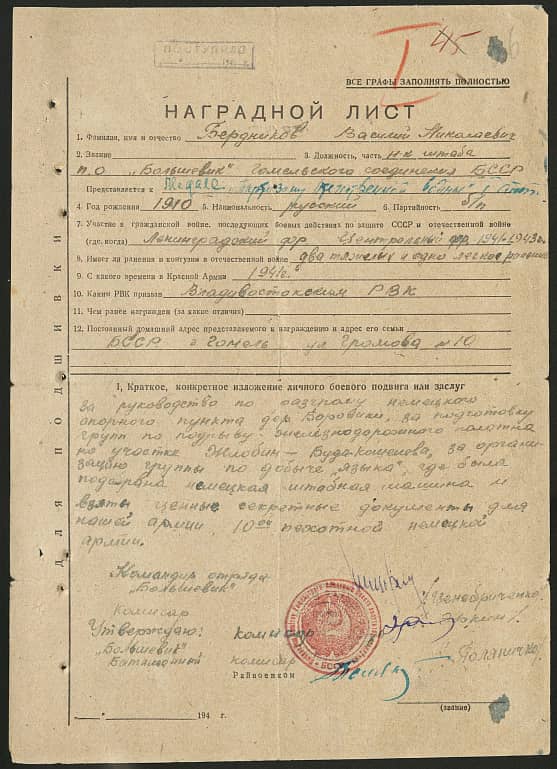 ПОСТУПИЛО
I 45
ВСЕ ГРАФЫ ЗАПОЛНЯТЬ ПОЛНОСТЬЮ
НАГРАДНОЙ ЛИСТ
1. Фамилия, имя и отчество Бердников Василий Николаевич
2. Звание 3. Должность, часть н-к штаба
п.о „Большевик" Гомельского соединения БССР
Представляется к Медаль „Партизану Отечественной войны" I
4. Год рождения 1910 5. Национальность русский 6. Партийность б/п
7. Участие в гражданской войне, последующих боевых действиях по защите СССР и отечественной войне
(где, когда) Ленинградский фр Центральный фр. 1941-1943
8. Имеет ли ранения и контузии в отечественной войне два тяжелых и одно легкое ранение
9. С какого времени в Красной Армии 1941г.
10. Каким РВК призван Владивостокским РВК
11. Чем ранее награжден (за какие отличия)
12. Постоянный домашний адрес представляемого к награждению и адрес его семьи
БССР г Гомель ул Громова № 10
I, Краткое, конкретное изложение личного боевого подвига или заслуг
За руководство по разгрому немецкого
опорного пункта дер Боровики, за подготовку
групп по подрыву железнодорожного полотна
на участке Жлобин – Буда-Кошелева, за органи-
зацию группы по добыче „языка", где была
немецкая штабная машина и
взяты ценные секретные документы для
нашей армии 10ой пехотной немецкой
армии.
Командир отряда
„Большевик"
Комисар
Утверждаю: комисар
„Большевик"
комисар
Райвоенком
БССР
(звание)
" " 194 г.
ДЛЯ ПОДШИВКИ